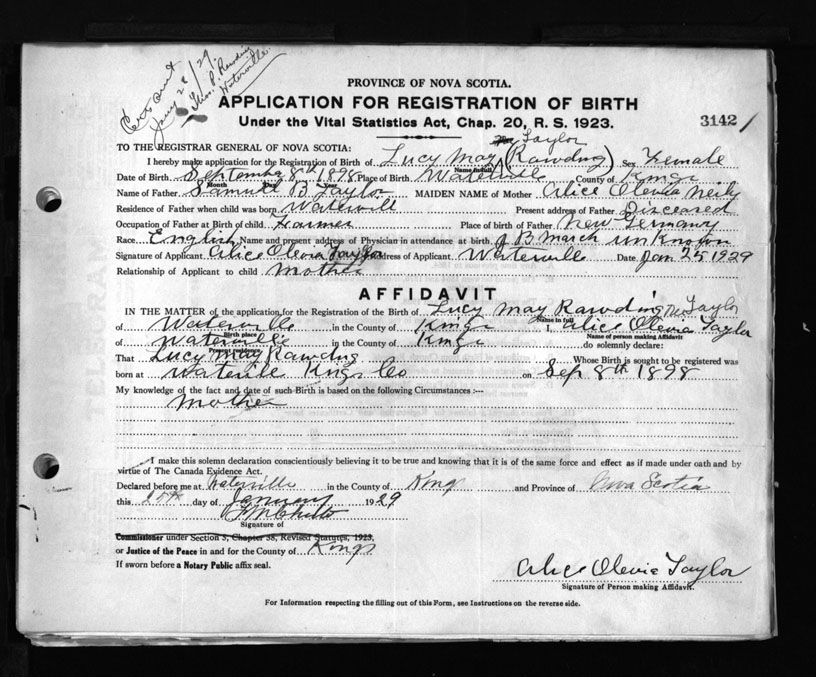 Cert sent
Jany 28/29
Thos. P. Rawding
Waterville.
PROVINCE OF NOVA SCOTIA.
APPLICATION FOR REGISTRATION OF BIRTH
Under the Vital Statistics Act, Chap. 20, R. S. 1923.
3142
TO THE REGISTRAR GENERAL OF NOVA SCOTIA:
Taylor
I hereby make application for the Registration of Birth of Lucy May (Rawding) Sex Female
Name in full
Date of Birth September 8th 1898 Place of Birth Waterville County of Kings
Month Day Year
Name of Father Samuel B Taylor MAIDEN NAME of Mother Alice Olevia Neily
Residence of Father when child was born Watervill Present address of Father Disceased
Occupation of Father at Birth of child Farmer Place of birth of Father New Germany
Race English Name and present address of Physician in attendance at birth J B March unknown
Signature of Applicant Alice Olevia Taylor Address of Applicant Waterville Date Jan 25 1929
Relationship of Applicant to child Mother
AFFIDAVIT
IN THE MATTER of the application for the Registration of the Birth of Lucy May Rawding Taylor
Name in full
of Waterville in the County of Kings I, Alice Olevia Taylor
Birth place
Name of person making Affidavit
of Waterville in the County of Kings do solemnly declare:
That Lucy May Rawding Whose Birth is sought to be registered was
born at Waterville Kings Co on Sep 8th 1898
My knowledge of the fact and date of such Birth is based on the following Circumstances :—
Mother
I make this solemn declaration conscientiously believing it to be true and knowing that it is of the same force and effect as if made under oath and by
virtue of The Canada Evidence Act.
Declared before me at Waterville in the County of Kings and Province of Nova Scotia
this 25th day of January 1929
Signature of
Commissioner under Section 3, Chapter 38, Revised Statutes, 1923.
or Justice of the Peace in and for the County of Kings
If sworn before a Notary Public affix seal.
Alice Olevia Taylor
Signature of Person making Affidavit.
For Information respecting the filling out of this Form, see Instructions on the reverse side.